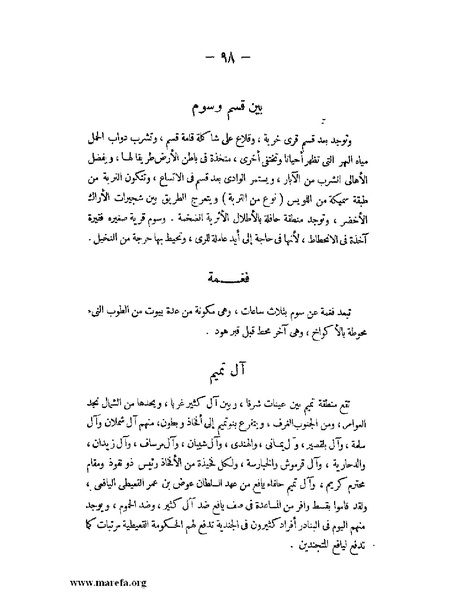 — ٩٨ —
بين قسم وسوم
وتوجد بعد قسم قرى خربة ، وقلاع على شاكلة قلعة قسم ، وتشرب دواب الحمل
مياه النهر التى تظهر أحيانا وتختفى أخرى ، متخذة فى باطن الأرض طريقا لها ، ويفضل
الأهالى الشرب من الآبار ، ويستمر الوادى بعد قسم فى الاتساع ، وتتكون التربة من
طبقة سميكة من اللويس ( نوع من التربة ) ويتعرج الطريق بين شجيرات الأراك
الأخضر ، وتوجد منطقة حافلة بالأطلال الأثرية الضخمة . وسوم قرية صغيره فقيرة
آخذة فى الانحطاط ، لأنها فى حاجة إلى أيد عاملة للرى ، وتحيط بها حرجة من النخيل .
فغمة
تبعد فغمة عن سوم بثلاث ساعات ، وهى مكونة من عدة بيوت من الطوب النىء
محوطة بالأكواخ ، وهى آخر محط قبل قبر هود .
آل تميم
تقع منطقة تميم بين عينات شرقا ، وبين آل كثير غربا ، ويحدها من الشمال نجد
العوامر ، ومن الجنوب الغرف ، ويتفرع بنو تميم إلى أفخاذ وبطون ، منهم آل شملان وآل
سلمة ، وآل بلقصير ، وآل يمانى ، والهندى ، وآل شيبان ، وآل مرساف ، وآل زيدان ،
والدحارية ، وآل قرموش والخبارسة ، ولكل فخيذة من الأفخاذ رئيس ذو نفوذ ومقام
محترم كريم ، وآل تميم حلفاء يافع من عهد السلطان عوض بن عمر القعيطى اليافعى ،
ولقد قاموا بقسط وافر من المساعدة فى صف يافع ضد آل كثير ، وضد الحموم ، ويوجد
منهم اليوم فى البنادر أفراد كثيرون فى الجندية تدفع لهم الحكومة القعيطية مرتبات كما
تدفع ليافع المتجندين .
www.marefa.org